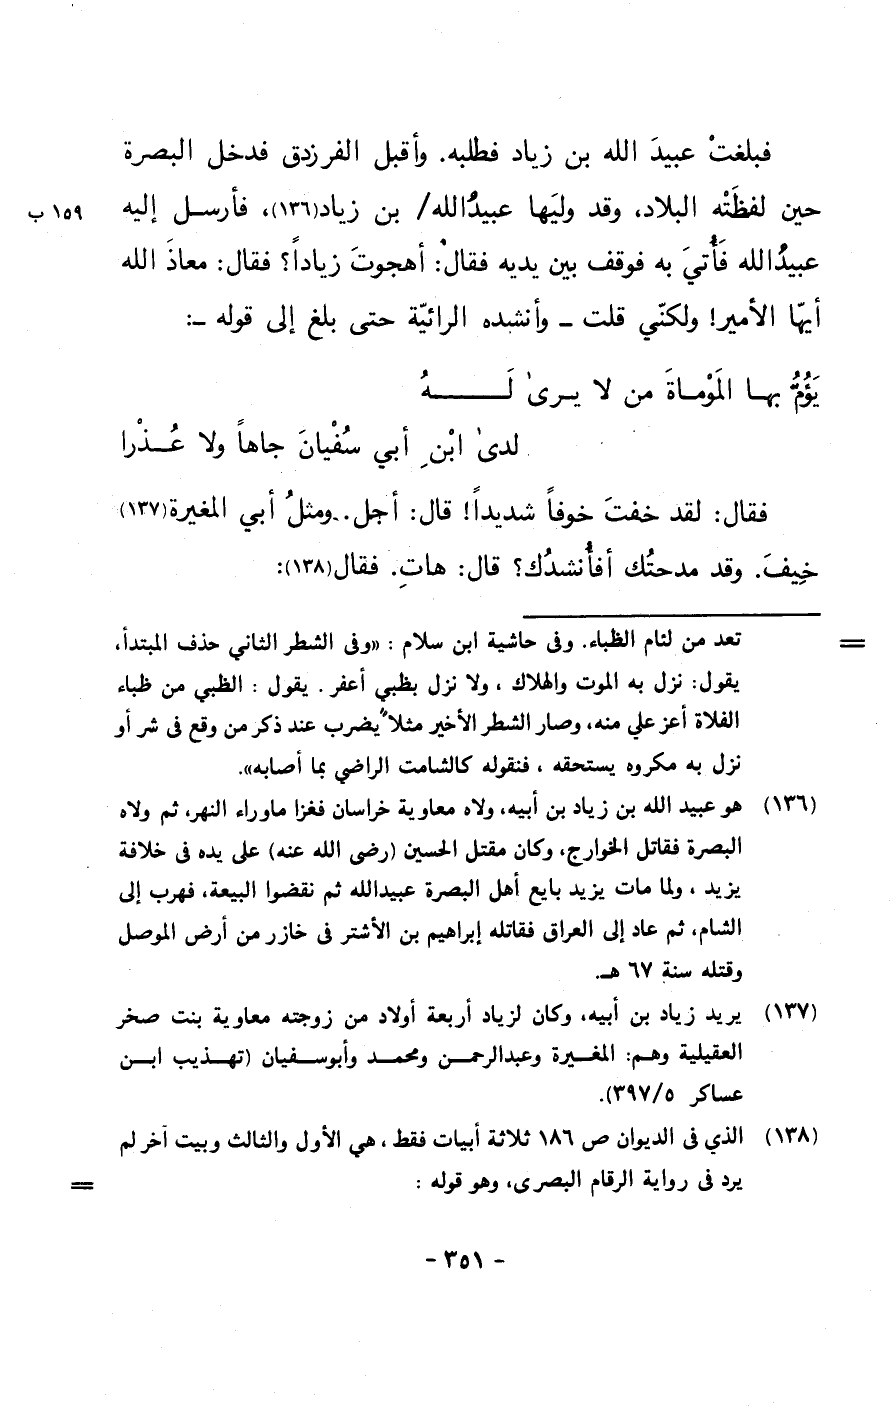 فبلغتْ عبيدَ الله بن زياد فطلبه. وأقبل الفرزدق فدخل البصرة
حين لفظَتْه البلاد، وقد وليَها عبيدُالله/ بن زياد(١٣٦)، فأرسـل إليه
١٥٩ ب
عبيدُالله فَأُتيَ به فوقف بين يديه فقال: أهجوتَ زياداً؟ فقال: معاذَ الله
أيهّا الأمير! ولكنّي قلت ـ وأنشده الرائيّة حتى بلغ إلى قوله ـ:
يَؤُمُّ بهـا المَوْمـاةَ من لا يـرىٰ لَـــــــهُ
لدىٰ ابْنِ أبي سُفْيانَ جاهاً ولا عُــذْرا
فقال: لقد خفتَ خوفاً شديداً! قال: أجل.. ومثلُ أبي المغيرة(١٣٧)
خِيفَ. وقد مدحتُك أفأُنشدُك؟ قال: هاتِ. فقال(١٣٨):
= تعد من لئام الظباء. وفى حاشية ابن سلام : «وفى الشطر الثاني حذف المبتدأ،
يقول: نزل به الموت والهلاك ، ولا نزل بظبي أعفر . يقول : الظبي من ظباء
الفلاة أعز علي منه، وصار الشطر الأخير مثلاً يضرب عند ذكر من وقع فى شر أو
نزل به مكروه يستحقه ، فنقوله كالشامت الراضي بما أصابه».
(١٣٦) هو عبيد الله بن زياد بن أبيه، ولاه معاوية خراسان فغزا ماوراء النهر، ثم ولاه
البصرة فقاتل الخوارج، وكان مقتل الحسين (رضى الله عنه) على يده فى خلافة
يزيد ، ولما مات يزيد بايع أهل البصرة عبيدالله ثم نقضوا البيعة، فهرب إلى
الشام، ثم عاد إلى العراق فقاتله إبراهيم بن الأشتر فى خازر من أرض الموصل
وقتله سنة ٦٧ هـ.
(١٣٧) يريد زياد بن أبيه، وكان لزياد أربعة أولاد من زوجته معاوية بنت صخر
العقيلية وهـم: المغـيرة وعبدالرحمـن ومحمـد وأبوسفيان (تهـذيب ابـن
عساكر ٣٩٧/٥).
(١٣٨) الذي فى الديوان ص ١٨٦ ثلاثة أبيات فقط ، هي الأول والثالث وبيت آخر لم
يرد فى رواية الرقام البصرى، وهو قوله :
=
- ٣٥١ -